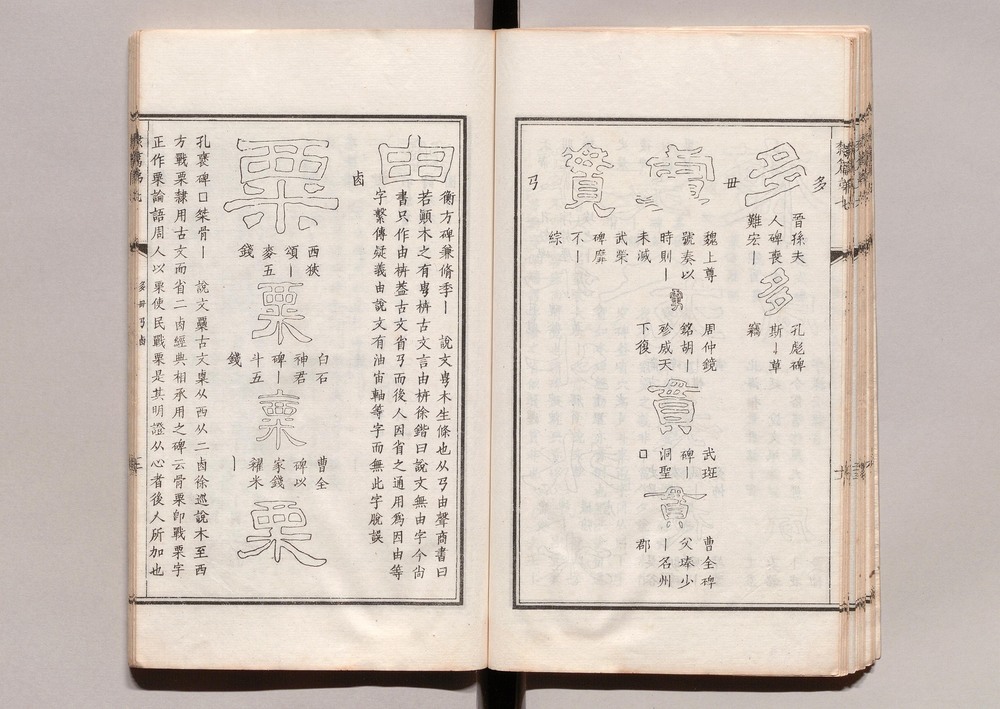 多
多
晉孫夫
人碑喪
難宏丨
多
孔彪碑
斯丨草
竊
毌
貫
魏上尊
號奏以
時則丨
未滅
貫
周仲鏡
銘胡丨
殄成天
下復
貫
武斑
碑丨
洞聖
□
貫
曹全碑
父琫少
丨名州
郡
貫
武榮
碑靡
不丨
綜
𢎘
由
衡方碑兼脩季丨 說文㽕木生條也从𢎘由聲商書曰
若顛木之有㽕枿古文言由枿徐鍇曰說文無由字今尚
書只作由枿蓋古文省𢎘而後人因省之通用爲因由等
字繫傳疑義由說文有油宙軸等字而無此字脫誤
卤
栗
西狹
頌丨
麥五
錢
栗
白石
神君
碑丨
斗五
錢
栗
曹全
碑以
家錢
糴米
丨
栗
孔褒碑□桀骨丨 說文㮚古文㮚从西从二卤徐巡說木至西
方戰栗隸用古文而省二卤經典相承用之碑云骨栗即戰栗字
正作栗論語周人以栗使民戰栗是其明證从心者後人所加也
多毌𢎘卤